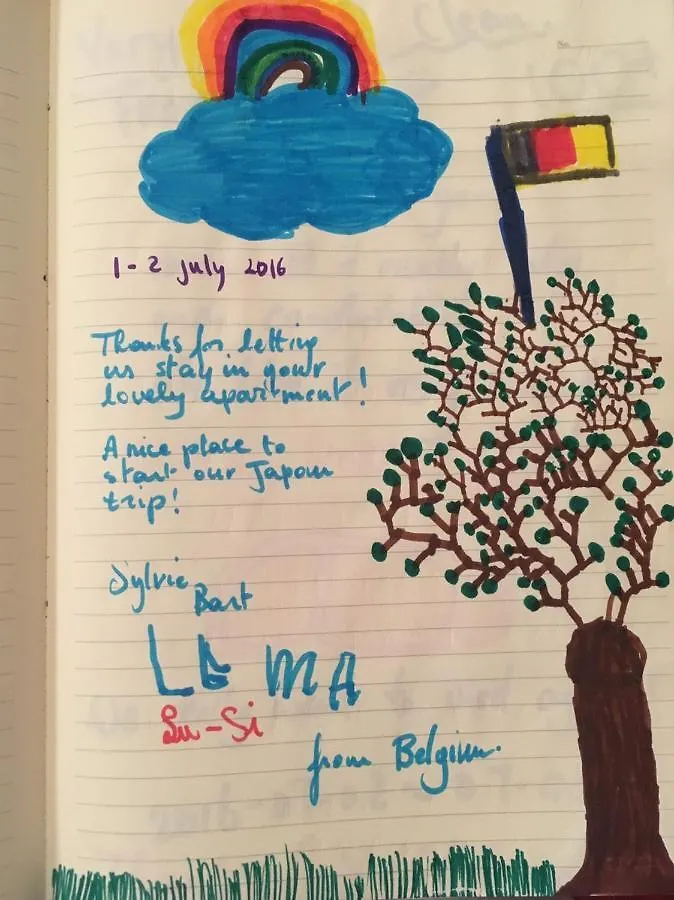 1-2 july 2016
Thanks for letting
us stay in your
lovely apartment!
A nice place to
start our Japan
trip!
Sylvie
Bart
MA
Lu-Si
from Belgium.